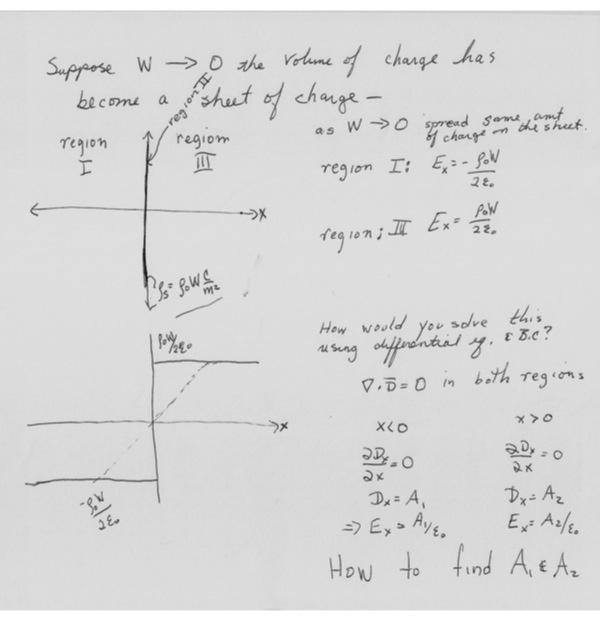 Suppose W → 0 the volume of charge has
become a sheet of charge —
region II
region I
region III
x
ρs = ρ₀W C/m²
as W → 0 spread same amt
of charge on the sheet.
region I: Ex = - ρ₀W/2ε₀
region: III Ex = ρ₀W/2ε₀
ρ₀W/2ε₀
x
-ρ₀W/2ε₀
How would you solve this
using differential eq. & B.C?
∇·D̄ = 0 in both regions
x<0 x>0
∂Dx/∂x = 0 ∂Dx/∂x = 0
Dx = A₁ Dx = A₂
⇒ Ex = A₁/ε₀ Ex = A₂/ε₀
How to find A₁ & A₂